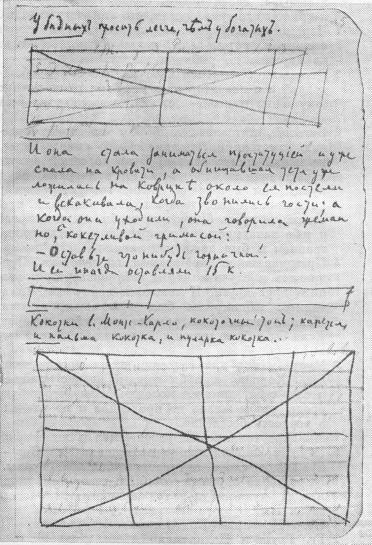 У бѣдныхъ просить легче, чѣмъ у богатыхъ.
И она стала заниматься проституціей и уже
спала на кровати, а обнищавшая тетя уже
ложилась на коврикѣ около ея постели
и вскакивала, когда звонились гости; а
когда они уходили, она говорила жеман
но, съ кокетливой гримасой:
— Оставьте что-нибудь горничной.
И ей иногда оставляли 15 к.
Кокотки в Монте-Карло, кокоточный тонъ;
и пальма кокотка, и пулярка кокотка...